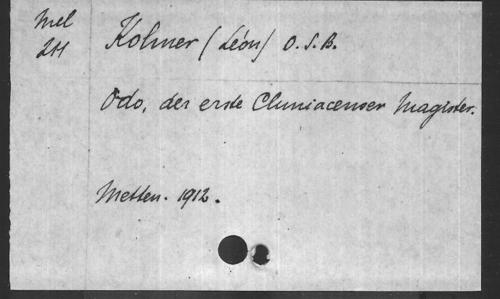 Mel
211
Kolmer (Léon) O.S.B.
Odo, der erste Cluniacenser Magister.
Metten. 1912.